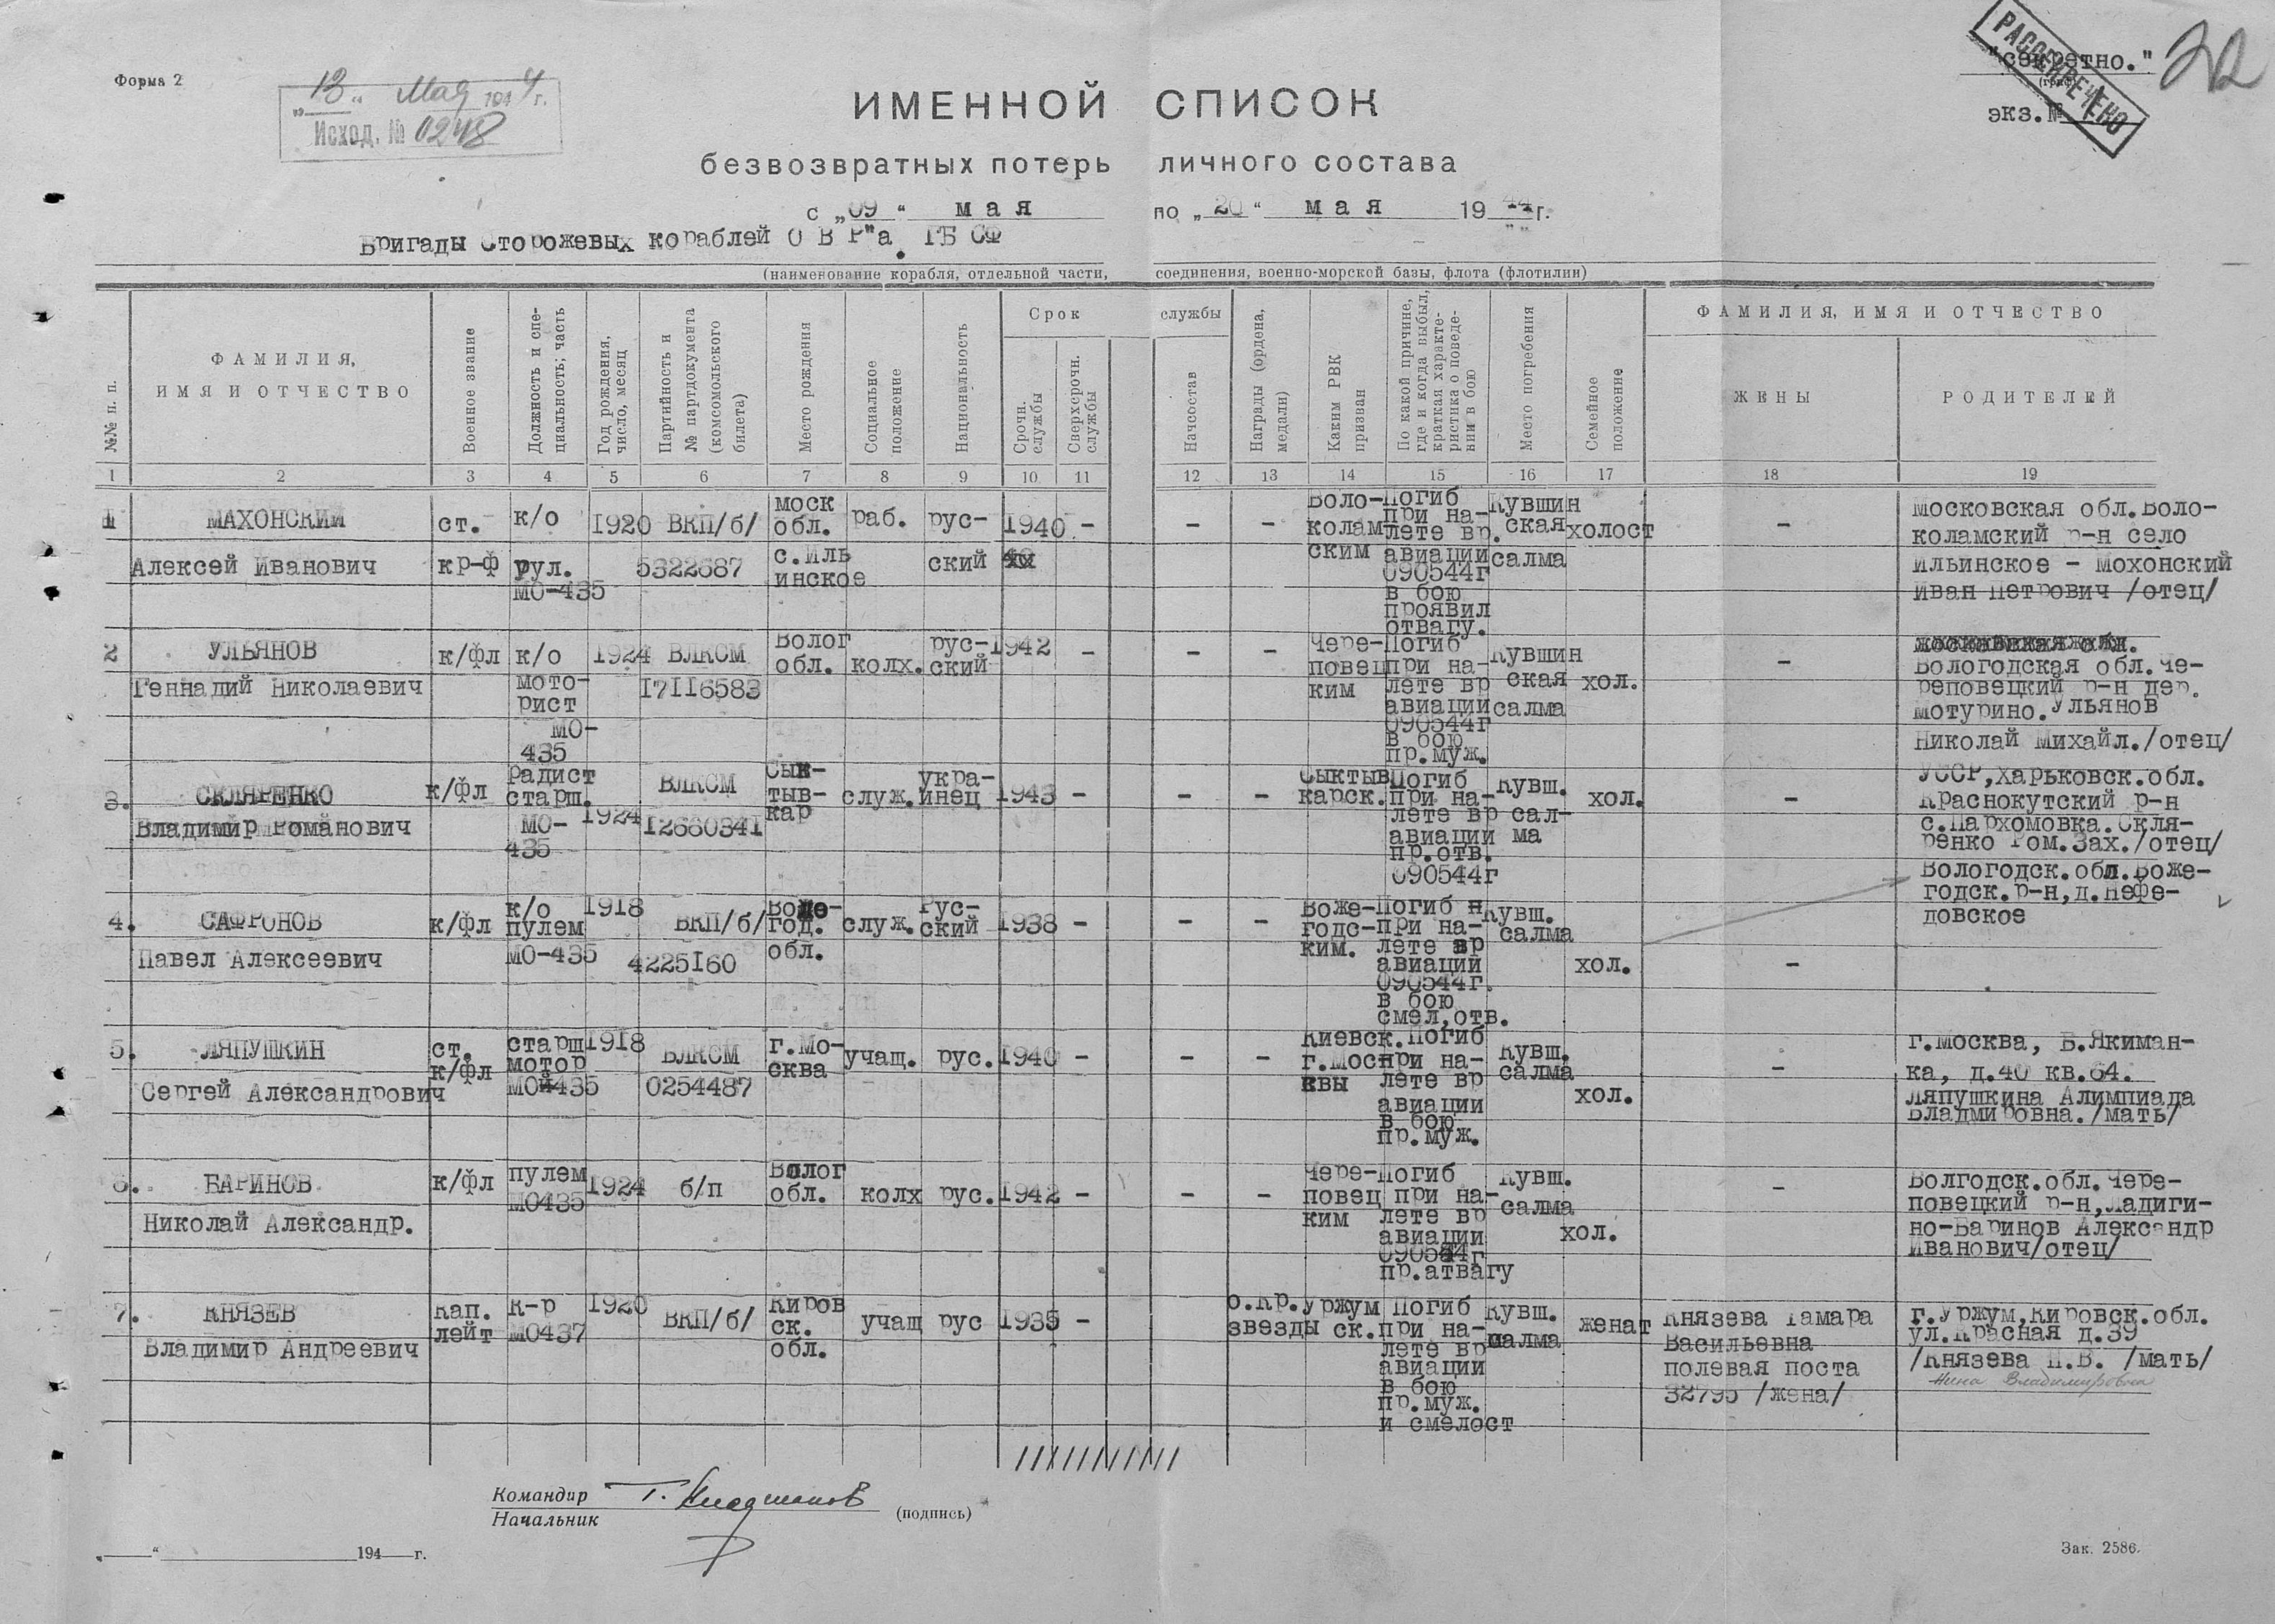 Форма 2
"13" Мая 1944 г.
Исход. № 0248
"секретно."
(гриф)
РАССЕКРЕЧЕНО
экз.№ 1
22
ИМЕННОЙ СПИСОК
безвозвратных потерь личного состава
с „09“ мая по „20“ мая 1944 г.
Бригады Сторожевых кораблей О В Р"а. ГБ СФ
(наименование корабля, отдельной части, соединения, военно-морской базы, флота (флотилии)
№№ п. п.
ФАМИЛИЯ,
ИМЯ И ОТЧЕСТВО
Военное звание
Должность и спе-
циальность; часть
Год рождения,
число, месяц
Партийность и
№ партдокумента
(комсомольского
билета)
Место рождения
Социальное
положение
Национальность
Срок службы
Срочн.
службы
Сверхсрочн.
службы
Начсостав
Награды (ордена,
медали)
Каким РВК
призван
По какой причине,
где и когда выбыл,
краткая характе-
ристика о поведе-
нии в бою
Место погребения
Семейное
положение
ФАМИЛИЯ, ИМЯ И ОТЧЕСТВО
ЖЕНЫ
РОДИТЕЛЕЙ
1 2 3 4 5 6 7 8 9 10 11 12 13 14 15 16 17 18 19
1
МАХОНСКИЙ
Алексей Иванович
ст.
кр-ф
к/о
рул.
МО-435
1920
ВКП/б/
5322687
моск
обл.
с.Иль
инское
раб.
рус-
ский
1940
-
-
-
Воло-
колам
ским
Погиб
при на-
лете вр.
авиации
090544г
в бою
проявил
отвагу.
Кувшин
ская
салма
холост
-
Московская обл.Воло-
коламский р-н село
Ильинское - Мохонский
Иван Петрович /отец/
2
УЛЬЯНОВ
Геннадий Николаевич
к/фл
к/о
мото-
рист
МО-
435
1924
ВЛКСМ
17116583
Волог
обл.
колх.
рус-
ский
1942
-
-
-
Чере-
повец
ким
Погиб
при на-
лете вр
авиации
090544г
в бою
пр.муж.
Кувшин
ская
салма
хол.
-
Вологодская обл.Че-
реповецкий р-н дер.
Мотурино.Ульянов
Николай Михайл./отец/
3.
СКЛЯРЕНКО
Владимир Романович
к/фл
Радист
старш.
МО-
435
1924
ВЛКСМ
12660341
Сык-
тыв-
кар
служ.
укра-
инец
1943
-
-
-
Сыктыв
карск.
Погиб
при на-
лете вр
авиации
пр.отв.
090544г
Кувш.
сал-
ма
хол.
-
УССР,Харьковск.обл.
Краснокутский р-н
с.Пархомовка.Скля-
ренко Ром.Зах./отец/
4.
САФРОНОВ
Павел Алексеевич
к/фл
к/о
пулем
МО-435
1918
ВКП/б/
4225160
Воже-
год.
обл.
служ.
Рус-
ский
1938
-
-
-
Воже-
годс-
ким.
Погиб
при на-
лете вр
авиации
090544г.
в бою
смел,отв.
Кувш.
салма
хол.
-
Вологодск.обл.Воже-
годск.р-н,д.Нефе-
довское
5.
ЛЯПУШКИН
Сергей Александрович
ст.
к/фл
старш
мотор
МО435
1918
ВЛКСМ
0254487
г.Мо-
сква
учащ.
рус.
1940
-
-
-
Киевск.
г.Мос
квы
Погиб
при на-
лете вр
авиации
в бою
пр.муж.
Кувш.
салма
хол.
-
г.Москва, Б.Якиман-
ка, д.40 кв.64.
Ляпушкина Алимпиада
Владмировна./мать/
6.
БАРИНОВ
Николай Александр.
к/фл
пулем
МО435
1924
б/п
Волог
обл.
колх
рус.
1942
-
-
-
Чере-
повец
ким
Погиб
при на-
лете вр
авиации
090544г
пр.атвагу
Кувш.
салма
хол.
-
Волгодск.обл.Чере-
повецкий р-н,Ладиги-
но-Баринов Александр
Иванович/отец/
7.
КНЯЗЕВ
Владимир Андреевич
Кап.
лейт
К-р
МО437
1920
ВКП/б/
Киров
ск.
обл.
учащ
рус
1935
-
о.Кр.
звезды
Уржум
ск.
Погиб
при на-
лете вр
авиации
в бою
пр.муж.
и смелост
Кувш.
салма
женат
Князева Тамара
Васильевна
полевая поста
32795 /жена/
г.Уржум,Кировск.обл.
ул.Красная д.39
/Князева Н.В. /мать/
Нина Владимировна
Командир
Начальник
(подпись)
„ “ 194 г.
Зак. 2586.